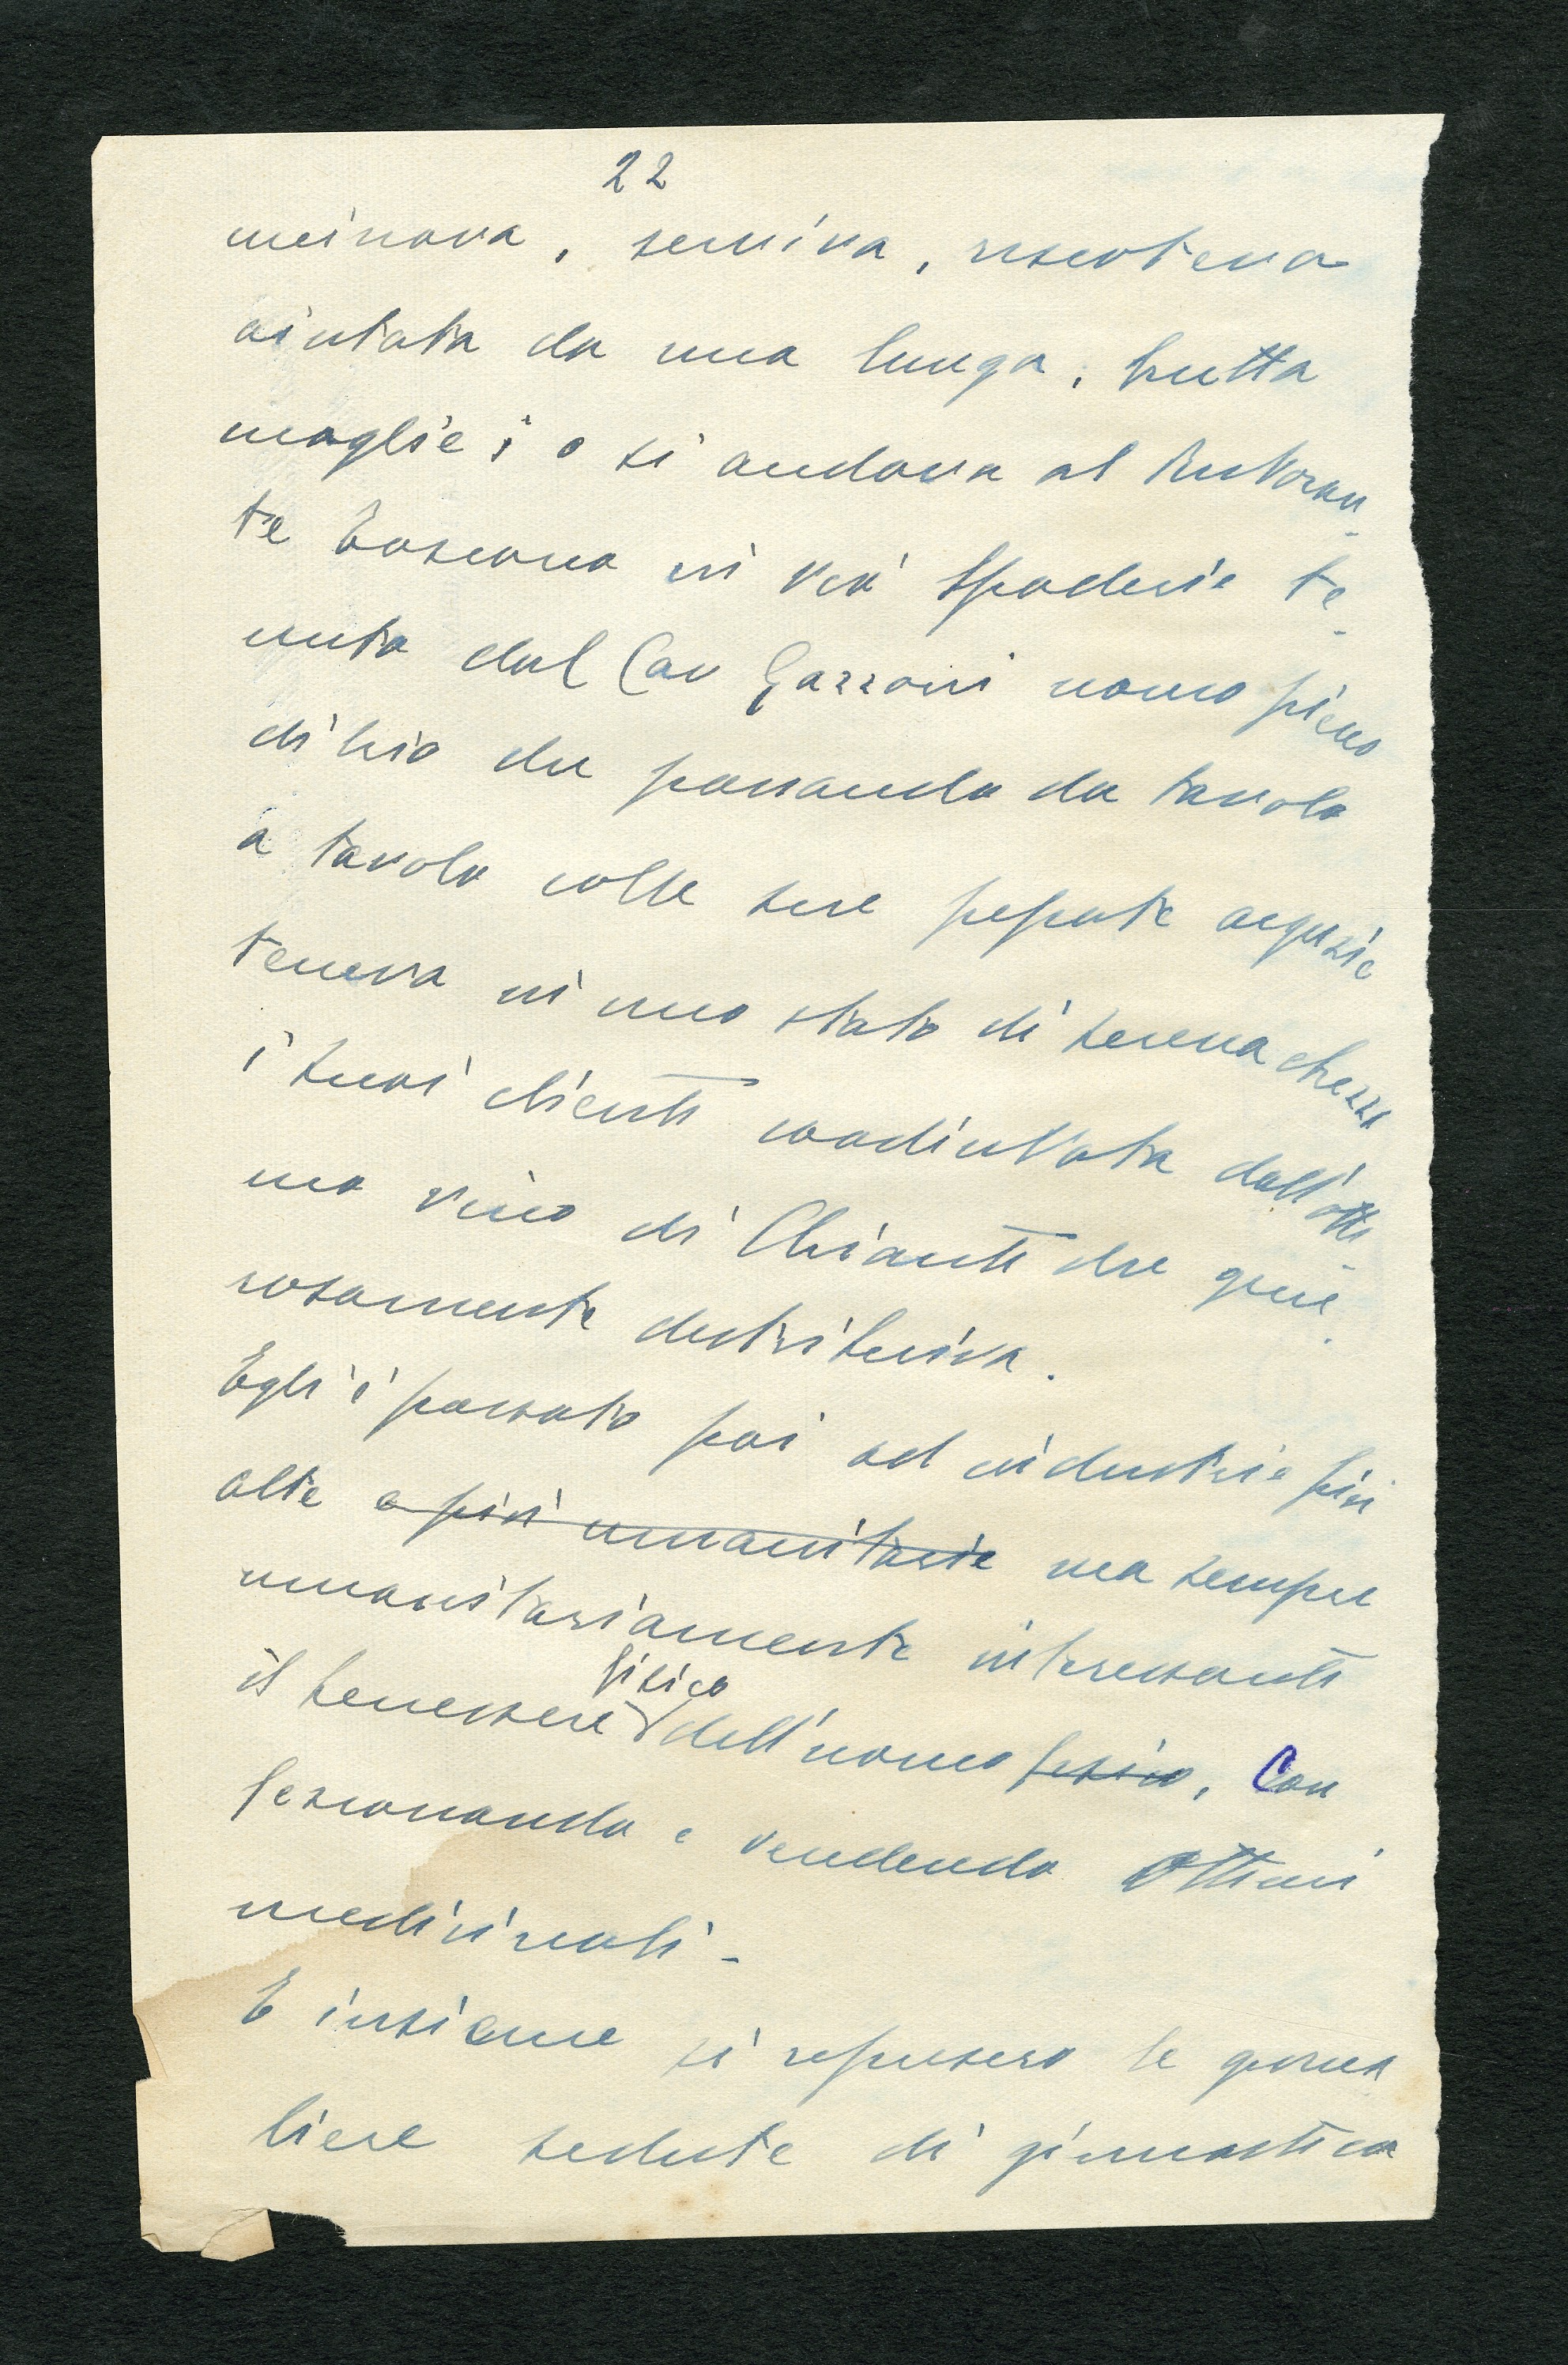 22
cucinava, serviva, riscoteva
aiutata da una lunga, brutta
moglie; o si andava al Ristoran-
te Toscana in via Spaderie te-
nuta dal Cav Gazzoni uomo pieno
di brio che passando da tavolo
a tavolo colle sue pepate arguzie
teneva in uno stato di serena ebrezza
i suoi clienti coadiuvata dall'otti-
mo vino di Chianti che gene-
rosamente distribuiva.
Egli è passato poi ad industrie più
alte e più umanitarie ma sempre
umanitariamente interessanti
fisico
il benessere dell'uomo fisico, Con
fezionando e vendendo ottimi
medicinali -
E insieme si ripresero le giorna
liere sedute di ginnastica